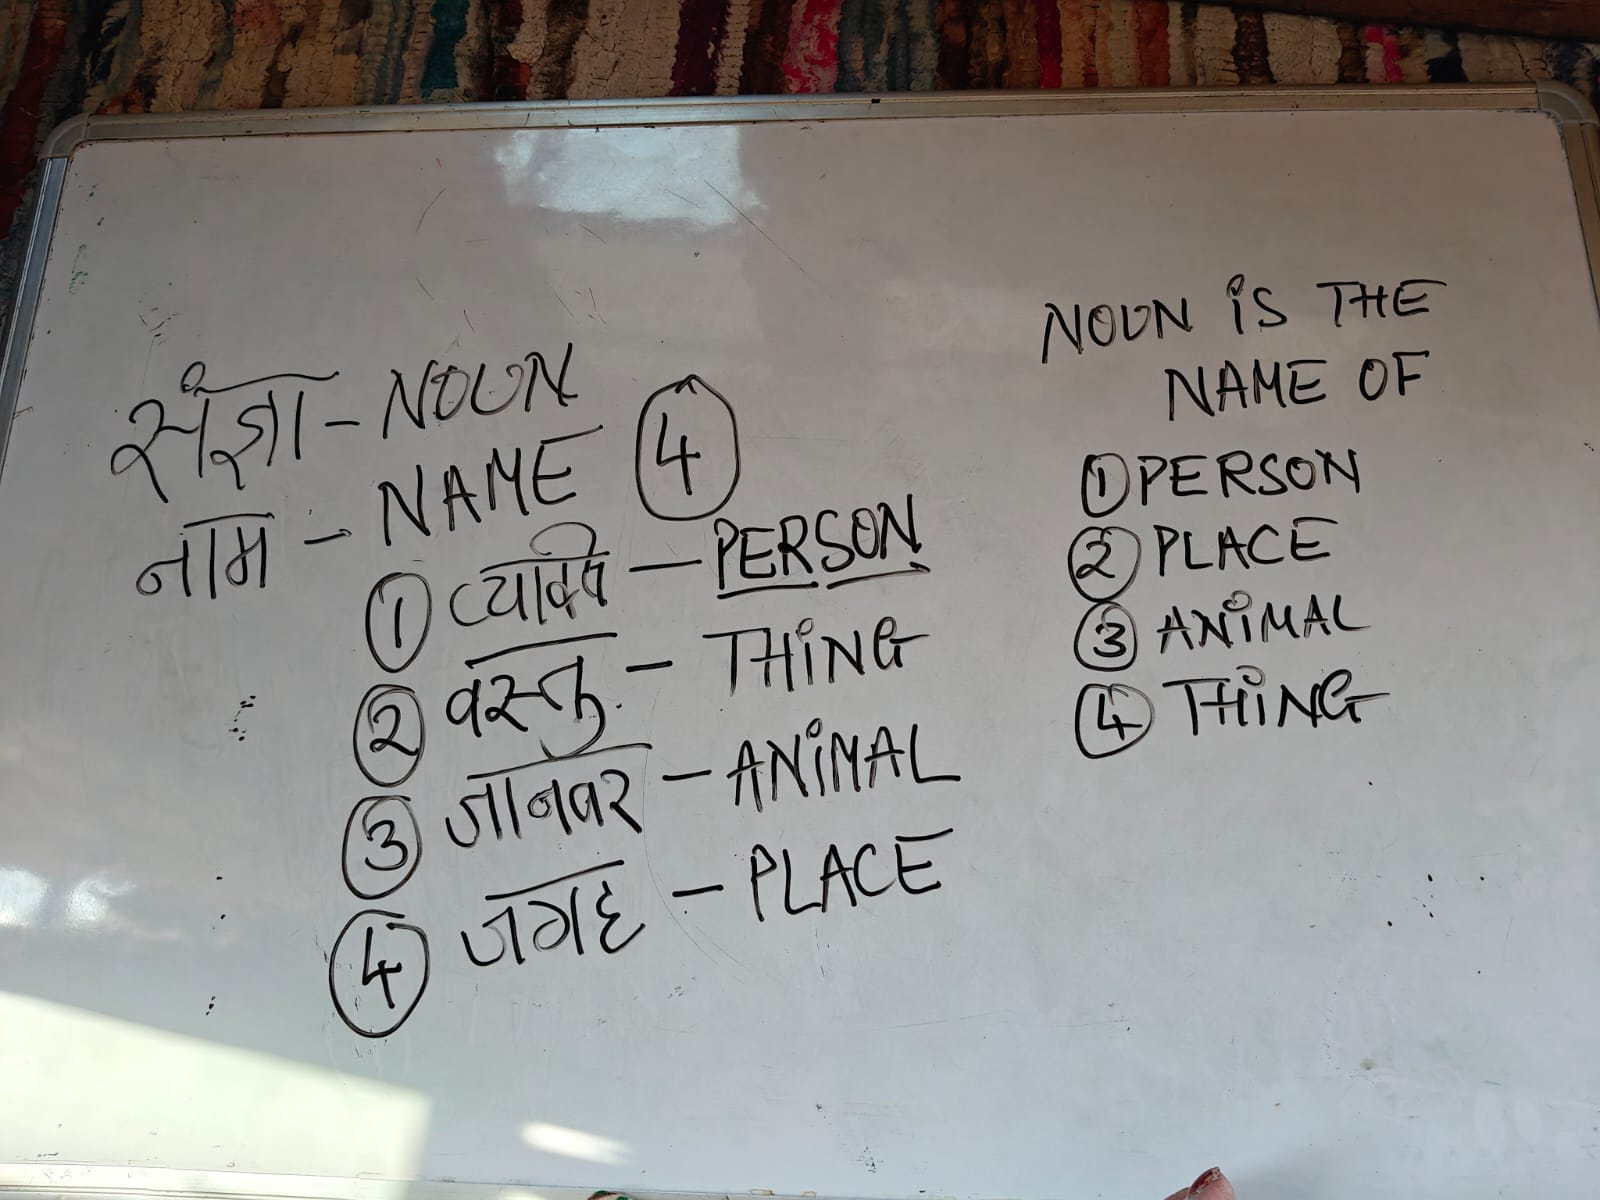 संज्ञा - NOUN
नाम - NAME ④
① व्यक्ति - PERSON
② वस्तु - THING
③ जानवर - ANIMAL
④ जगह - PLACE
NOUN iS THE
NAME OF
① PERSON
② PLACE
③ ANiMAL
④ THiNG